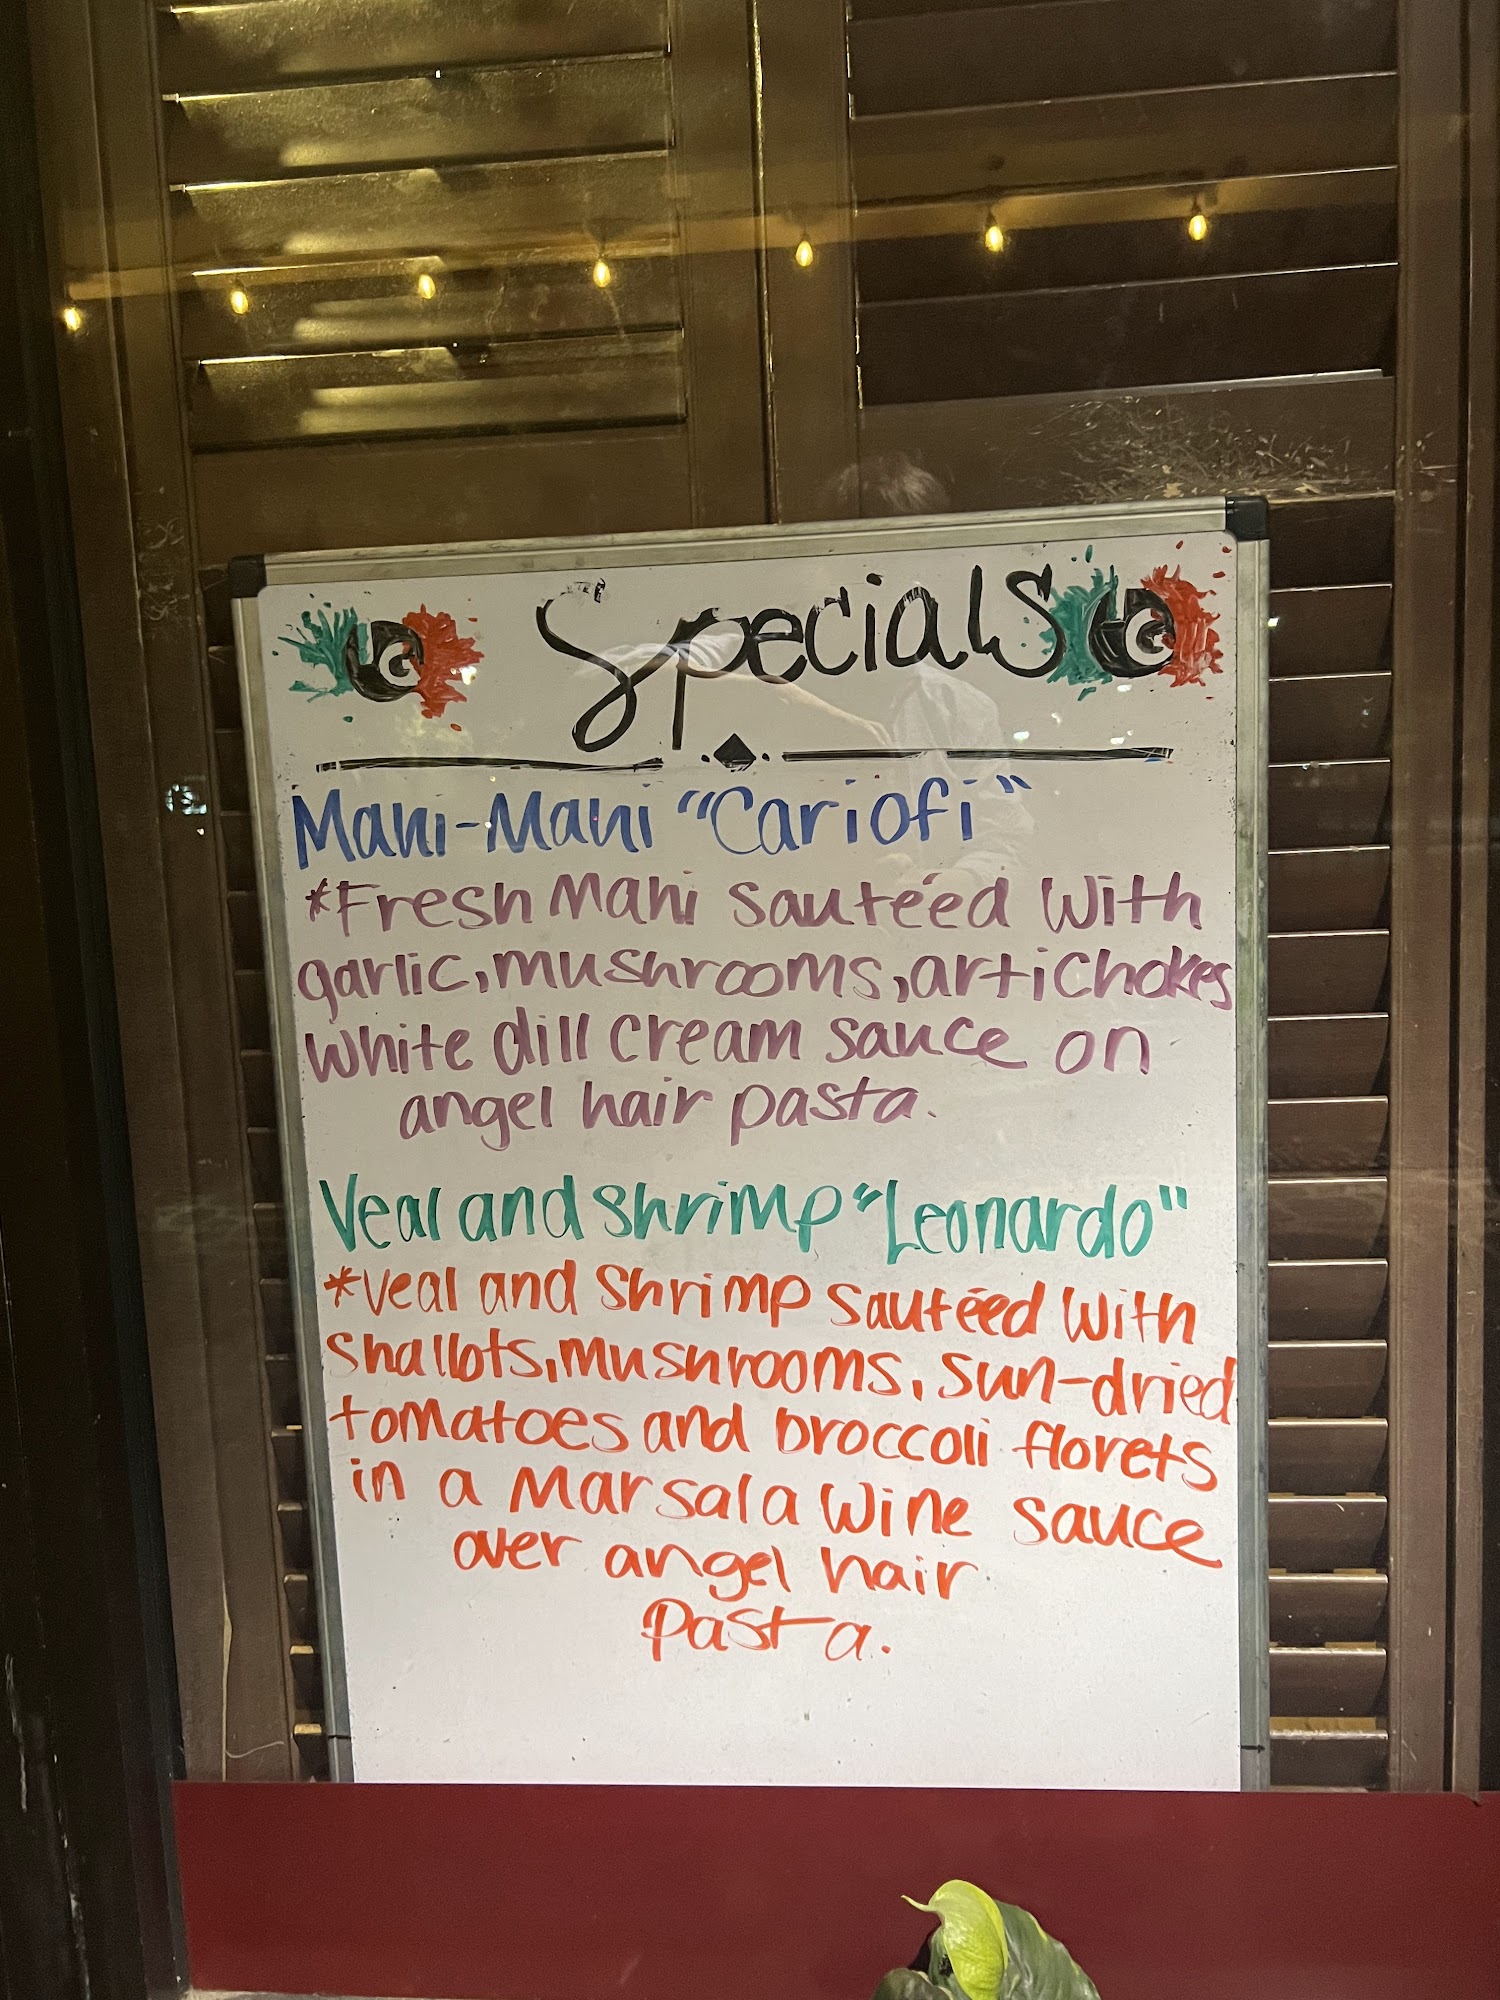 Specials
Mahi-Mahi "Cariofi"
*Fresh Mahi sautéed with
garlic, mushrooms, artichokes
white dill cream sauce on
angel hair pasta.
Veal and shrimp "Leonardo"
*Veal and shrimp sautéed with
shallots, mushrooms, sun-dried
tomatoes and broccoli florets
in a Marsala wine sauce
over angel hair
pasta.